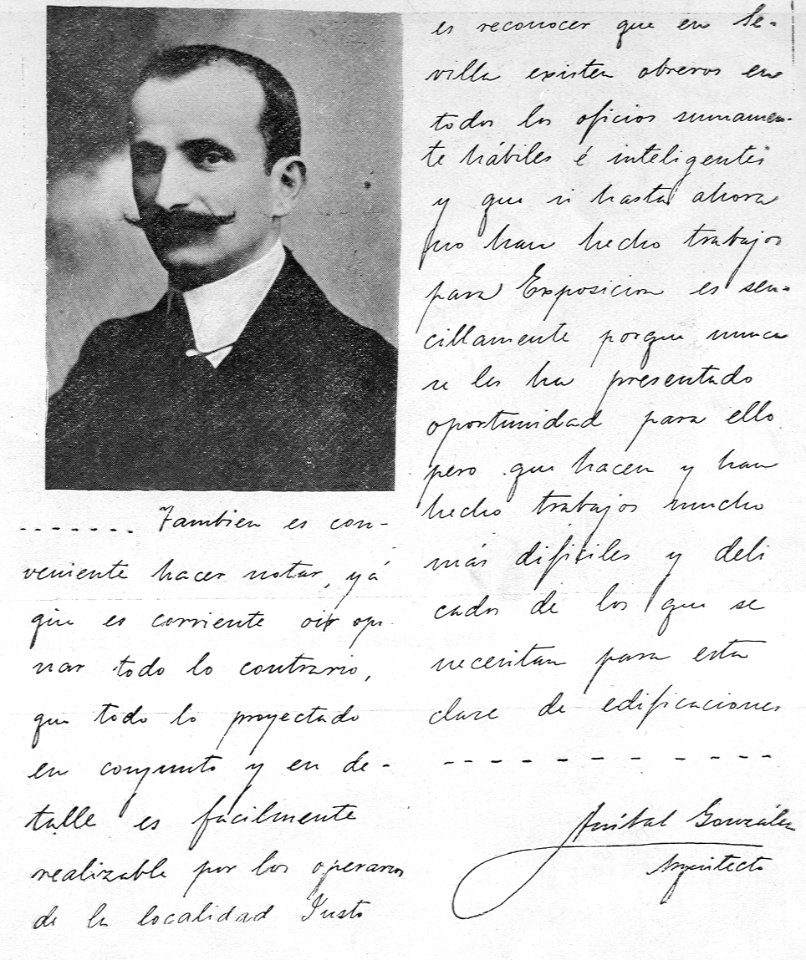 ....... Tambien es con-
veniente hacer notar, yá
que es corriente oir opi
nar todo lo contrario,
que todo lo proyectado
en conjunto y en de-
talle es fácilmente
realizable por los operarios
de la localidad Justo
es reconocer que en Se-
villa existen obreros en
todos los oficios sumamen-
te hábiles é inteligentes
y que si hasta ahora
no han hecho trabajos
para Exposicion es sen-
cillamente porque nunca
se les ha presentado
oportunidad para ello
pero que hacen y han
hecho trabajos mucho
más dificiles y deli
cados de los que se
necesitan para esta
clase de edificaciones
- - - - - - - - - -
Anibal González
Arquitecto